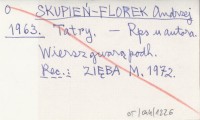 O SKUPIEŃ-FLOREK Andrzej
1963. Tatry. — Rps u autora.
Wiersz gwarą podh.
Rec.: ZIĘBA M. 1972.